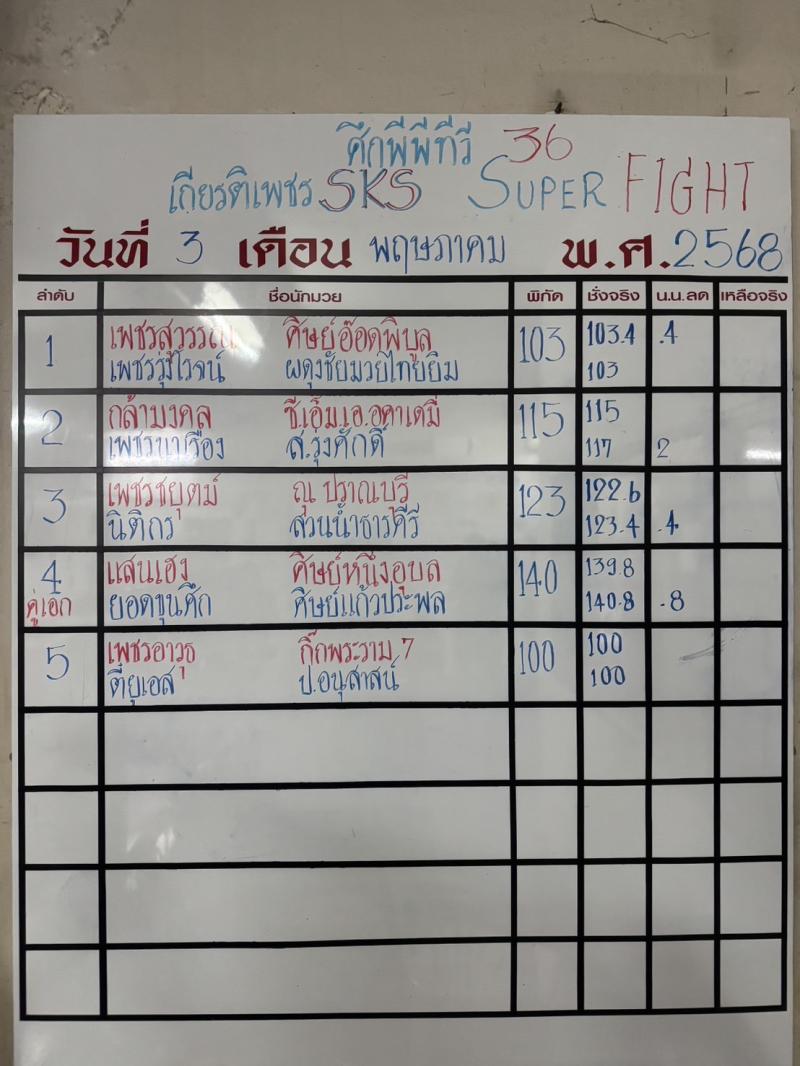 ศึกพีพีทีวี 36
เกียรติเพชร SKS SUPER FIGHT
วันที่ 3 เดือน พฤษภาคม พ.ศ.2568
ลำดับ ชื่อนักมวย พิกัด ชั่งจริง น.น.ลด เหลือจริง
1 เพชรสุวรรณ ศิษย์อ๊อดพิบูล 103 103.4 .4
เพชรรุ่งโรจน์ ผดุงชัยมวยไทยยิม 103
2 กล้ามงคล ซี.เอ็ม.เอ.อคาเดมี่ 115 115
เพชรนาเรือง ส.รุ่งศักดิ์ 117 2
3 เพชรชยุตม์ ณุ ปราณบุรี 123 122.6
นิติกร สวนน้ำธารคีรี 123.4 .4
4 แสนเฮง ศิษย์หนึ่งอุบล 140 139.8
คู่เอก ยอดขุนศึก ศิษย์แก้วประพล 140.8 .8
5 เพชรอาวุธ กิ๊กพระราม.7 100 100
ตี๋ยูเอส ป.อนุสาสน์ 100